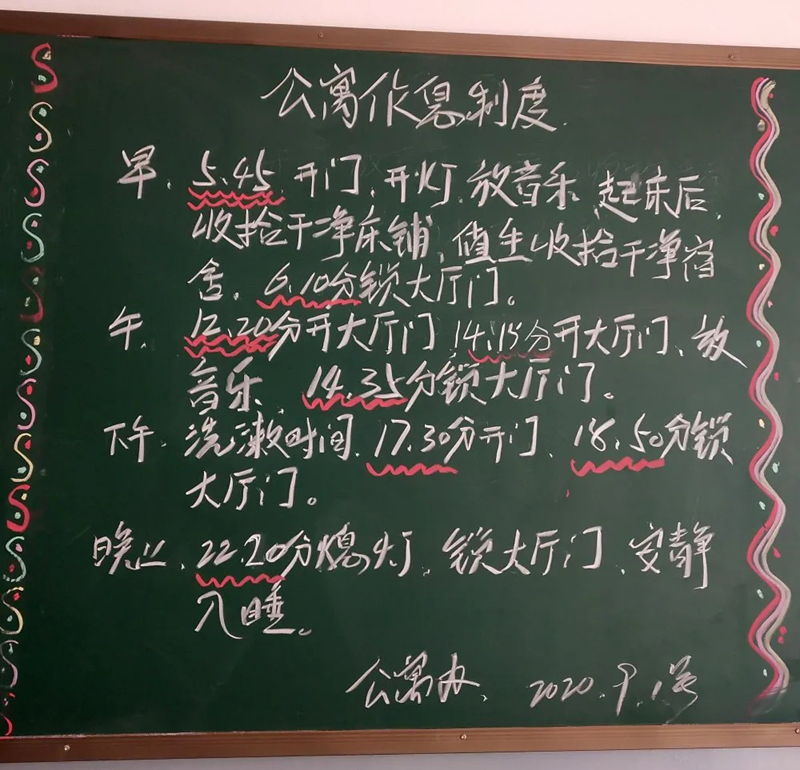 公寓作息制度.
早、5.45 开门、开灯、放音乐、起床后、
收拾干净床铺、值生收拾干净宿
舍、6.10分锁大厅门。
午、12.20分开大厅门、14.15分开大厅门、放
音乐、14.35分锁大厅门。
下午、洗漱时间、17.30分开门、18.50分锁
大厅门。
晚上、22.20分熄灯、锁大厅门、安静
入睡。
公寓办、2020.9.1号